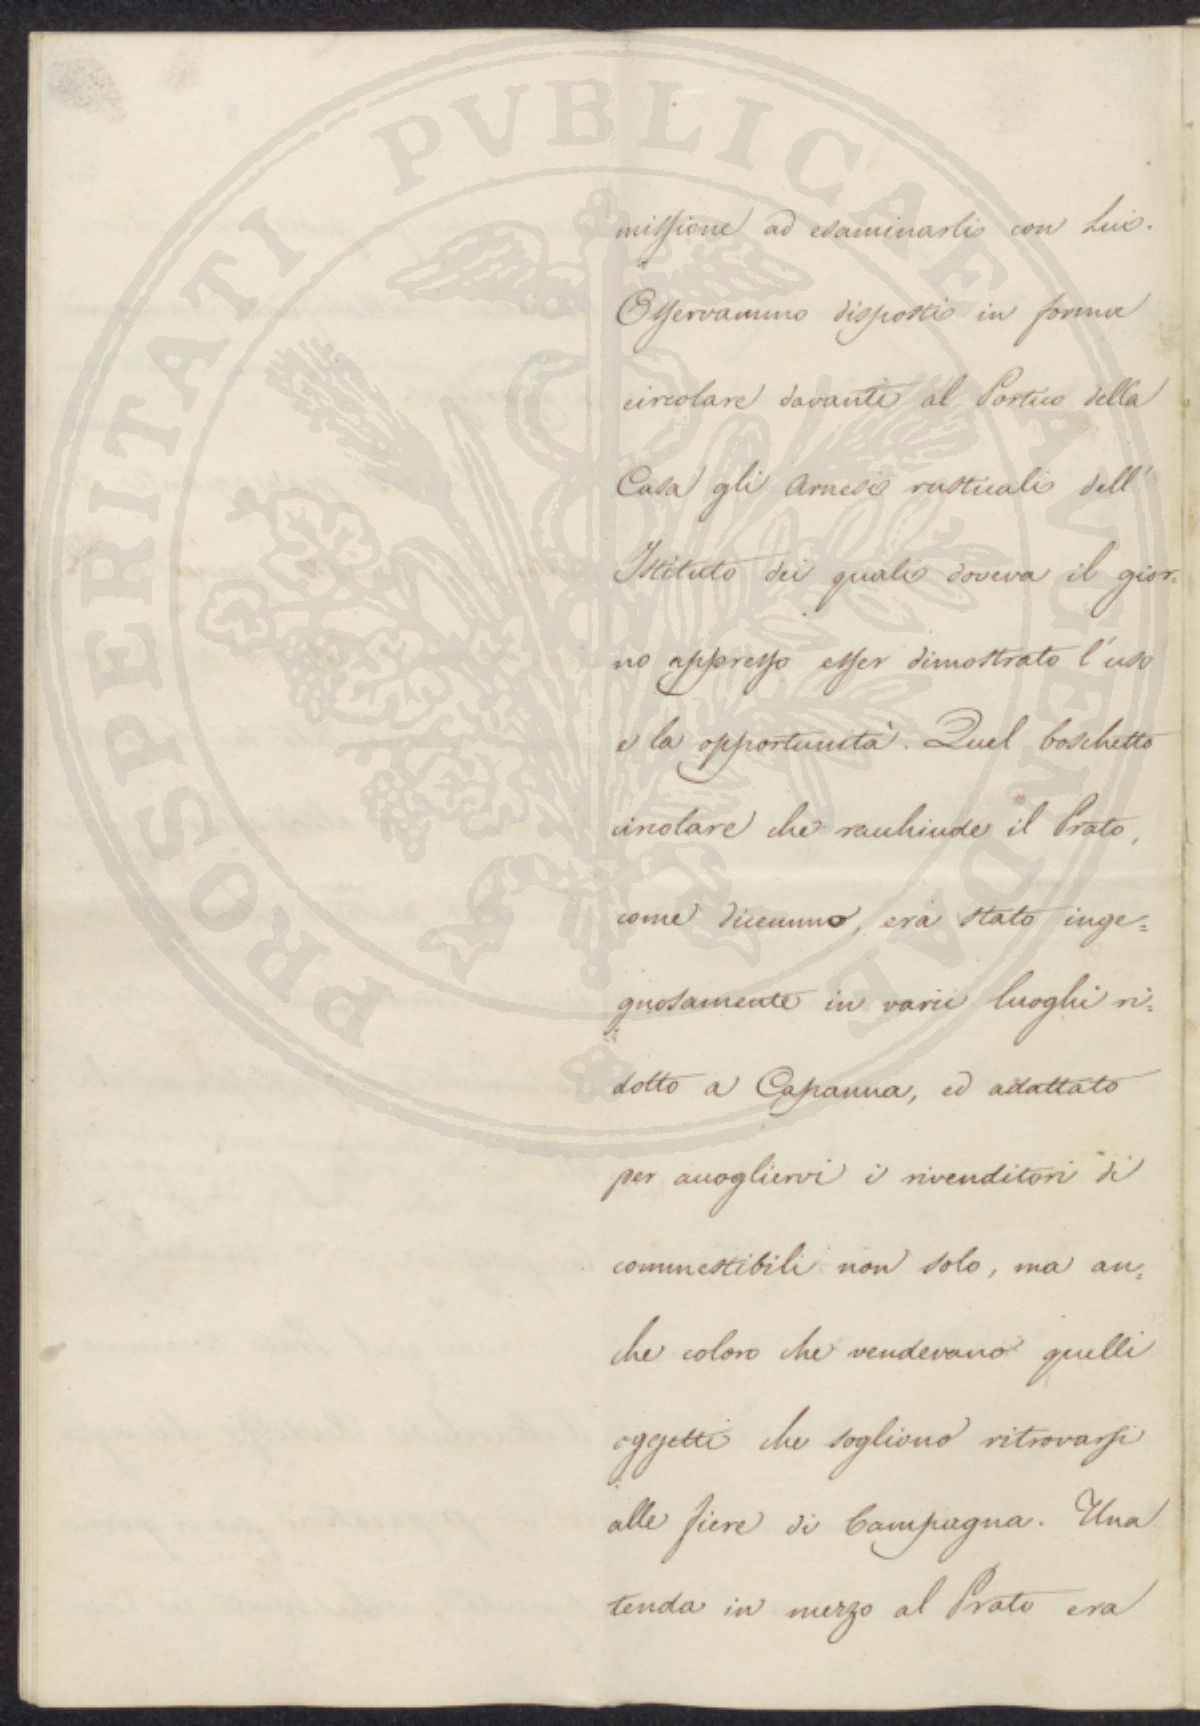 PROSPERITATI PVBLICAE AVGENDAE
missione ad esaminarli con Lui.
Osservammo disposti in forma
circolare davanti al Portico della
Casa gli Arnesi rusticali dell'
Istituto dei quali doveva il gior-
no appresso esser dimostrato l'uso
e la opportunità. Quel boschetto
circolare che racchiude il Prato,
come dicemmo, era stato inge=
gnosamente in varii luoghi ri=
dotto a Capanna, ed adattato
per accogliervi i rivenditori di
commestibili non solo, ma an=
che coloro che vendevano quelli
oggetti che sogliono ritrovarsi
alle fiere di Campagna. Una
tenda in mezzo al Prato era